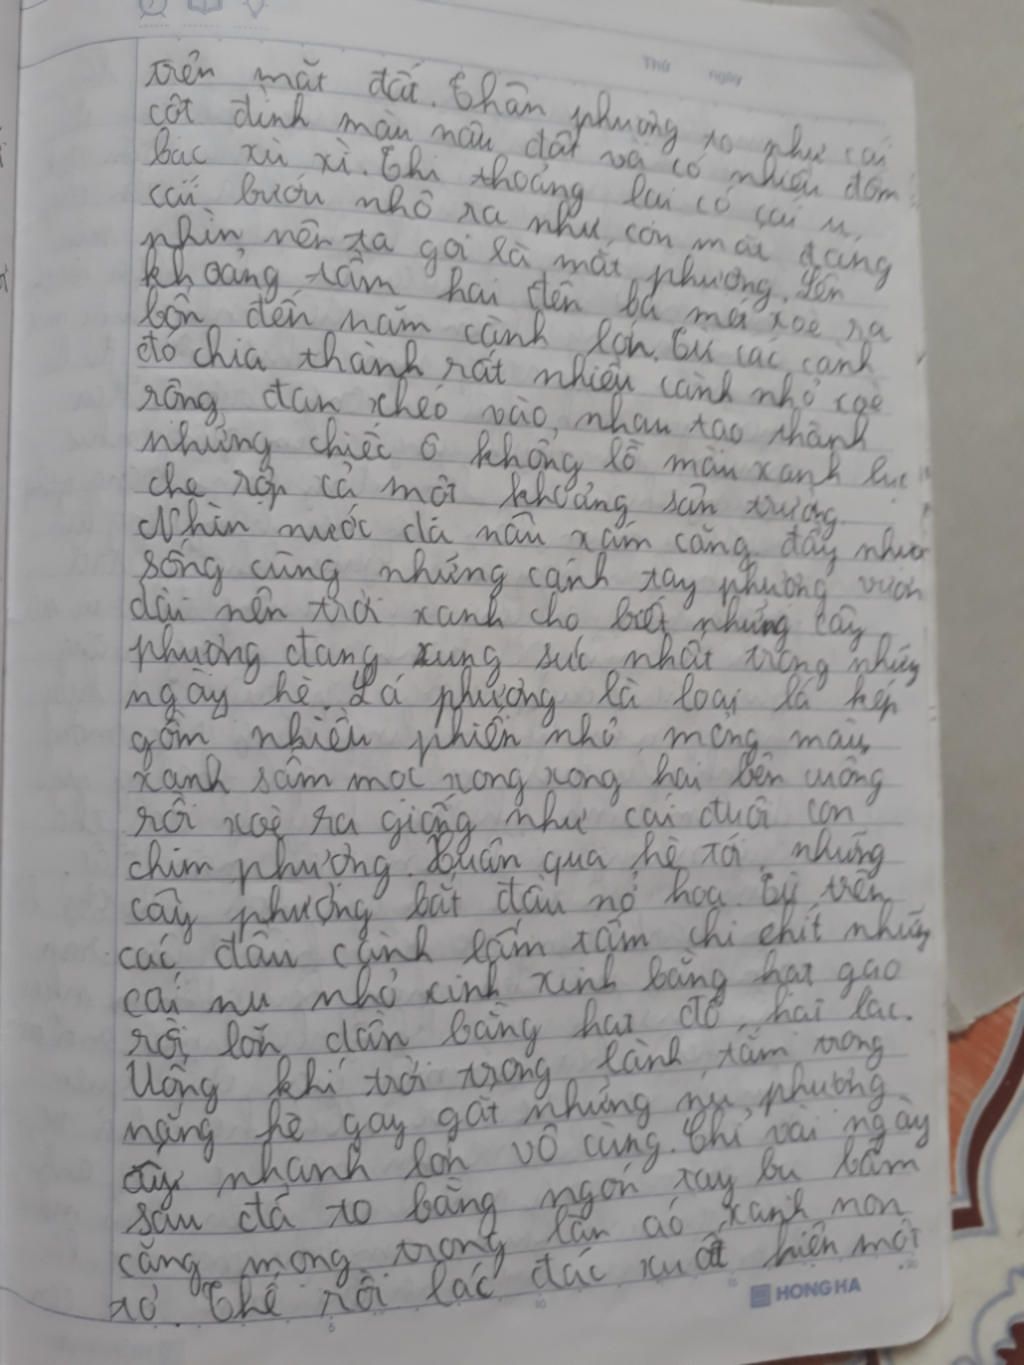 Thứ ngày
trên mặt đất. Thân phượng to như cái
cột đình màu nâu đất và có nhiều đốm
bạc xù xì. Thi thoảng lại có cái u,
cái bướu nhô ra như con mắt đang
nhìn nên ta gọi là mắt phượng. Lên
khoảng tầm hai đến ba mét xoè ra
bốn đến năm cành lớn. Từ các cành
đó chia thành rất nhiều cành nhỏ xoè
rộng đan chéo vào nhau tạo thành
những chiếc ô khổng lồ màu xanh lục
che rợp cả một khoảng sân trường.
Nhìn nước da nâu xám căng đầy nhựa
sống cùng những cánh tay phượng vươn
dài nên trời xanh cho biết những cây
phượng đang xung sức nhất trong những
ngày hè. Lá phượng là loại lá kép
gồm nhiều phiến nhỏ mỏng màu
xanh sẫm mọc xong xong hai bên cuống
rồi xoè ra giống như cái đuôi con
chim phượng. Xuân qua hè tới, những
cây phượng bắt đầu nở hoa. Từ trên
các đầu cành lấm tấm chi chít những
cái nụ nhỏ xinh xinh bằng hạt gạo
rồi lớn dần bằng hạt đỗ, hạt lạc.
Uống khí trời trong lành, tắm trong
nắng hè gay gắt những nụ phượng
ấy nhanh lớn vô cùng. Chỉ vài ngày
sau đã to bằng ngón tay bu bẫm
căng mọng trong lần áo xanh non
tơ. Thế rồi lác đác xuất hiện một
HONG HA